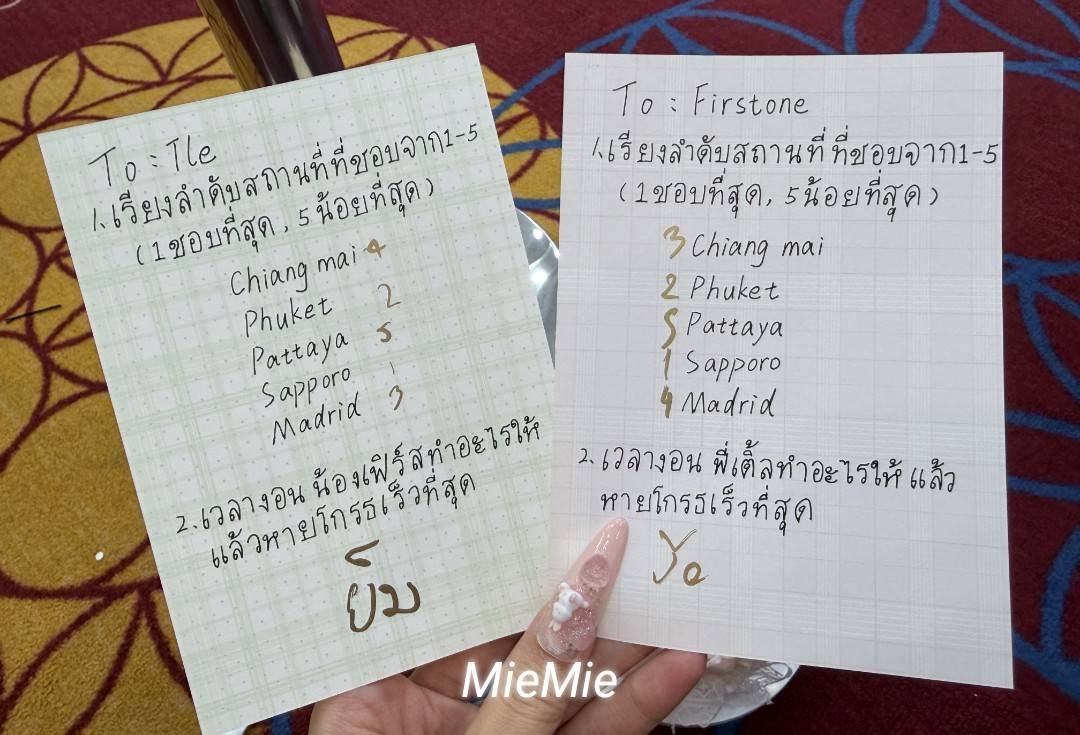 To : Tle
1. เรียงลำดับสถานที่ที่ชอบจาก1-5
(1ชอบที่สุด, 5น้อยที่สุด)
Chiang mai 4
Phuket 2
Pattaya 5
Sapporo 1
Madrid 3
2. เวลางอน น้องเฟิร์สทำอะไรให้
แล้วหายโกรธเร็วที่สุด
ยิ้ม
To : Firstone
1. เรียงลำดับสถานที่ที่ชอบจาก1-5
(1ชอบที่สุด, 5น้อยที่สุด)
3 Chiang mai
2 Phuket
5 Pattaya
1 Sapporo
4 Madrid
2. เวลางอน พี่เติ้ลทำอะไรให้ แล้ว
หายโกรธเร็วที่สุด
MieMie